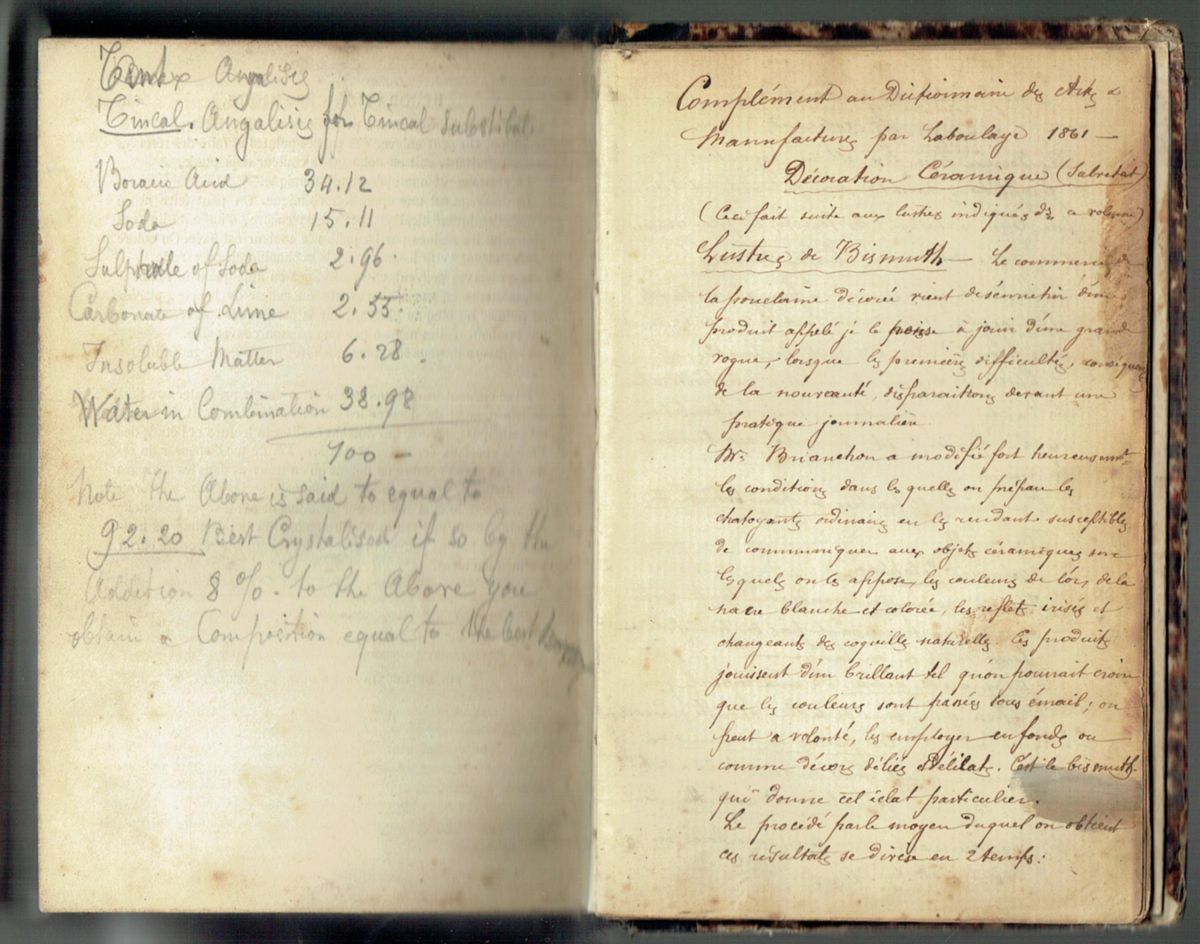 Angalisis
Tincal. Angalisis for Tincal Substitut.
Boracic Acid 34.12
Soda 15.11
Sulphate of Soda 2.96.
Carbonate of Lime 2.55.
Insoluble Matter 6.28.
Water in Combination 38.98
100 —
Note the Above is said to equal to
92.20 Best Crystalised if so by the
Addition 8 %. to the Above you
obtain a Composition equal to the best
Complément au Dictionnaire des Arts &
Manufactures par Laboulaye 1861 —
Décoration Céramique (Salvetat)
(Ceci fait suite aux lustres indiqués
Lustres de Bismuth — Le commerce de
la porcelaine décorée vient de s'enrichir d'un
produit appelé je le pense à jouir d'une grande
vogue, lorsque les premières difficultés,
de la nouveauté, disparaitrons devant une
pratique journalière
Mr. Brianchon a modifié fort heureusemt
les conditions dans lesquelles on prépare les
chatoyants ordinaires en les rendant susceptibles
de communiquer aux objets céramiques sur
lesquels on les appose, les couleurs de l'or, de la
nacre blanche et colorée, les reflets irisés et
changeants des coquilles naturelles les produits
jouissent d'un brillant tel qu'on pourrait croire
que les couleurs sont passées sous émail; on
peut a volonté, les employer en fonds ou
comme décors déliés & délicats. C'est le bismuth
qui donne cet éclat particulier.
Le procédé par le moyen duquel on obtient
ces résultats se divise en 2 temps: